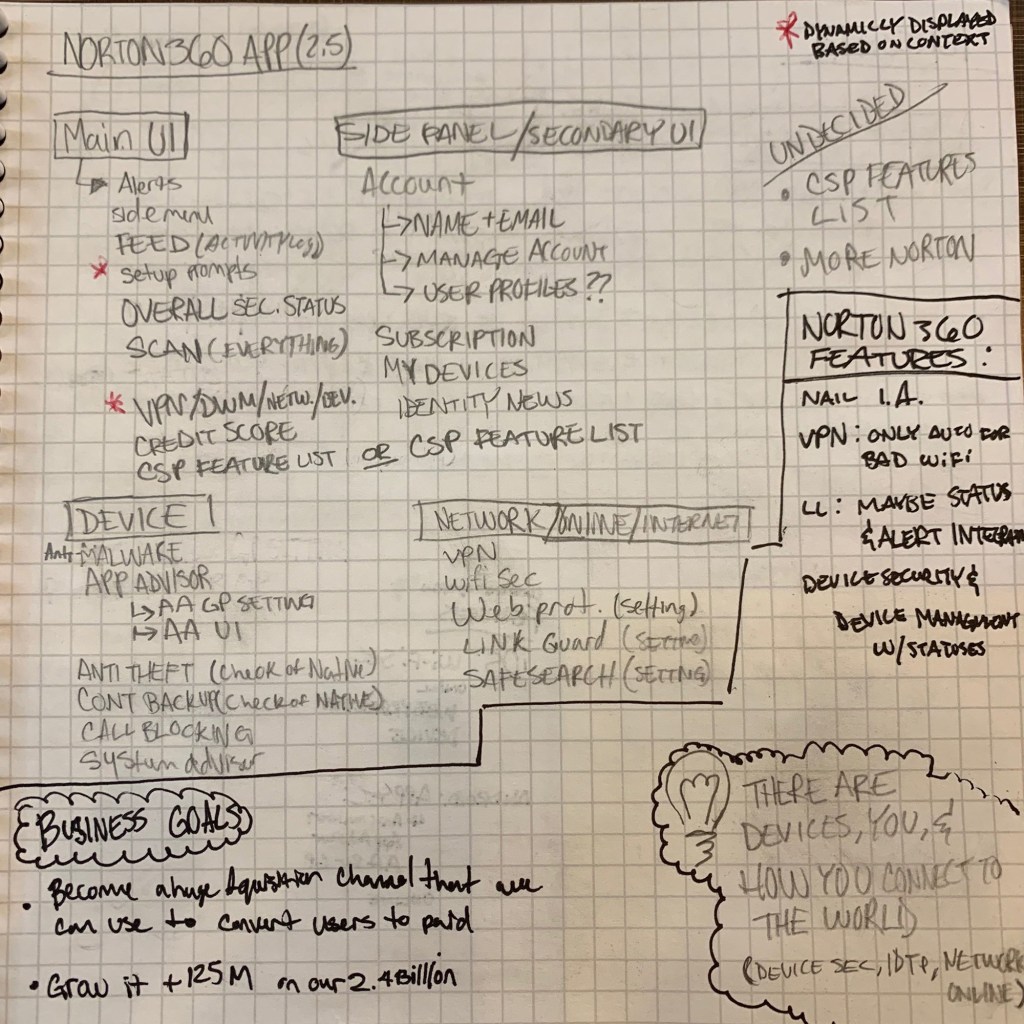 NORTON 360 APP (2.5)
* DYNAMICLY DISPLAYED
BASED ON CONTEXT
Main UI
Alerts
side menu
FEED (ACTIVITY LOG)
* setup prompts
OVERALL SEC. STATUS
SCAN (EVERYTHING)
* VPN/DWM/NETW./DEV.
CREDIT SCORE
CSP FEATURE LIST OR CSP FEATURE LIST
SIDE PANEL/SECONDARY UI
Account
↳NAME + EMAIL
↳MANAGE ACCOUNT
↳USER PROFILES??
SUBSCRIPTION
MY DEVICES
IDENTITY NEWS
UNDECIDED
• CSP FEATURES
LIST
• MORE NORTON
NORTON 360
FEATURES:
NAIL I.A.
VPN: ONLY AUTO FOR
BAD WIFI
LL: MAYBE STATUS
& ALERT INTEGRA
DEVICE SECURITY &
DEVICE MANAGMENT
W/STATUSES
DEVICE
Anti-MALWARE
APP ADVISOR
↳ AA GP SETTING
↳ AA UI
ANTI THEFT (Check of Native)
CONT BACKUP (Check of NATIVE)
CALL BLOCKING
System advisor
NETWORK/ONLINE/INTERNET
VPN
wifi sec
Web prot. (setting)
LINK Guard (SETTING)
SAFESEARCH (SETTING)
BUSINESS GOALS
• Become a huge Aquisition channel that we
can use to convert users to paid
• Grow it +125M on our 2.4 Billion
THERE ARE
DEVICES, YOU, &
HOW YOU CONNECT TO
THE WORLD
(DEVICE SEC, IDTP, NETWORK
ONLINE)